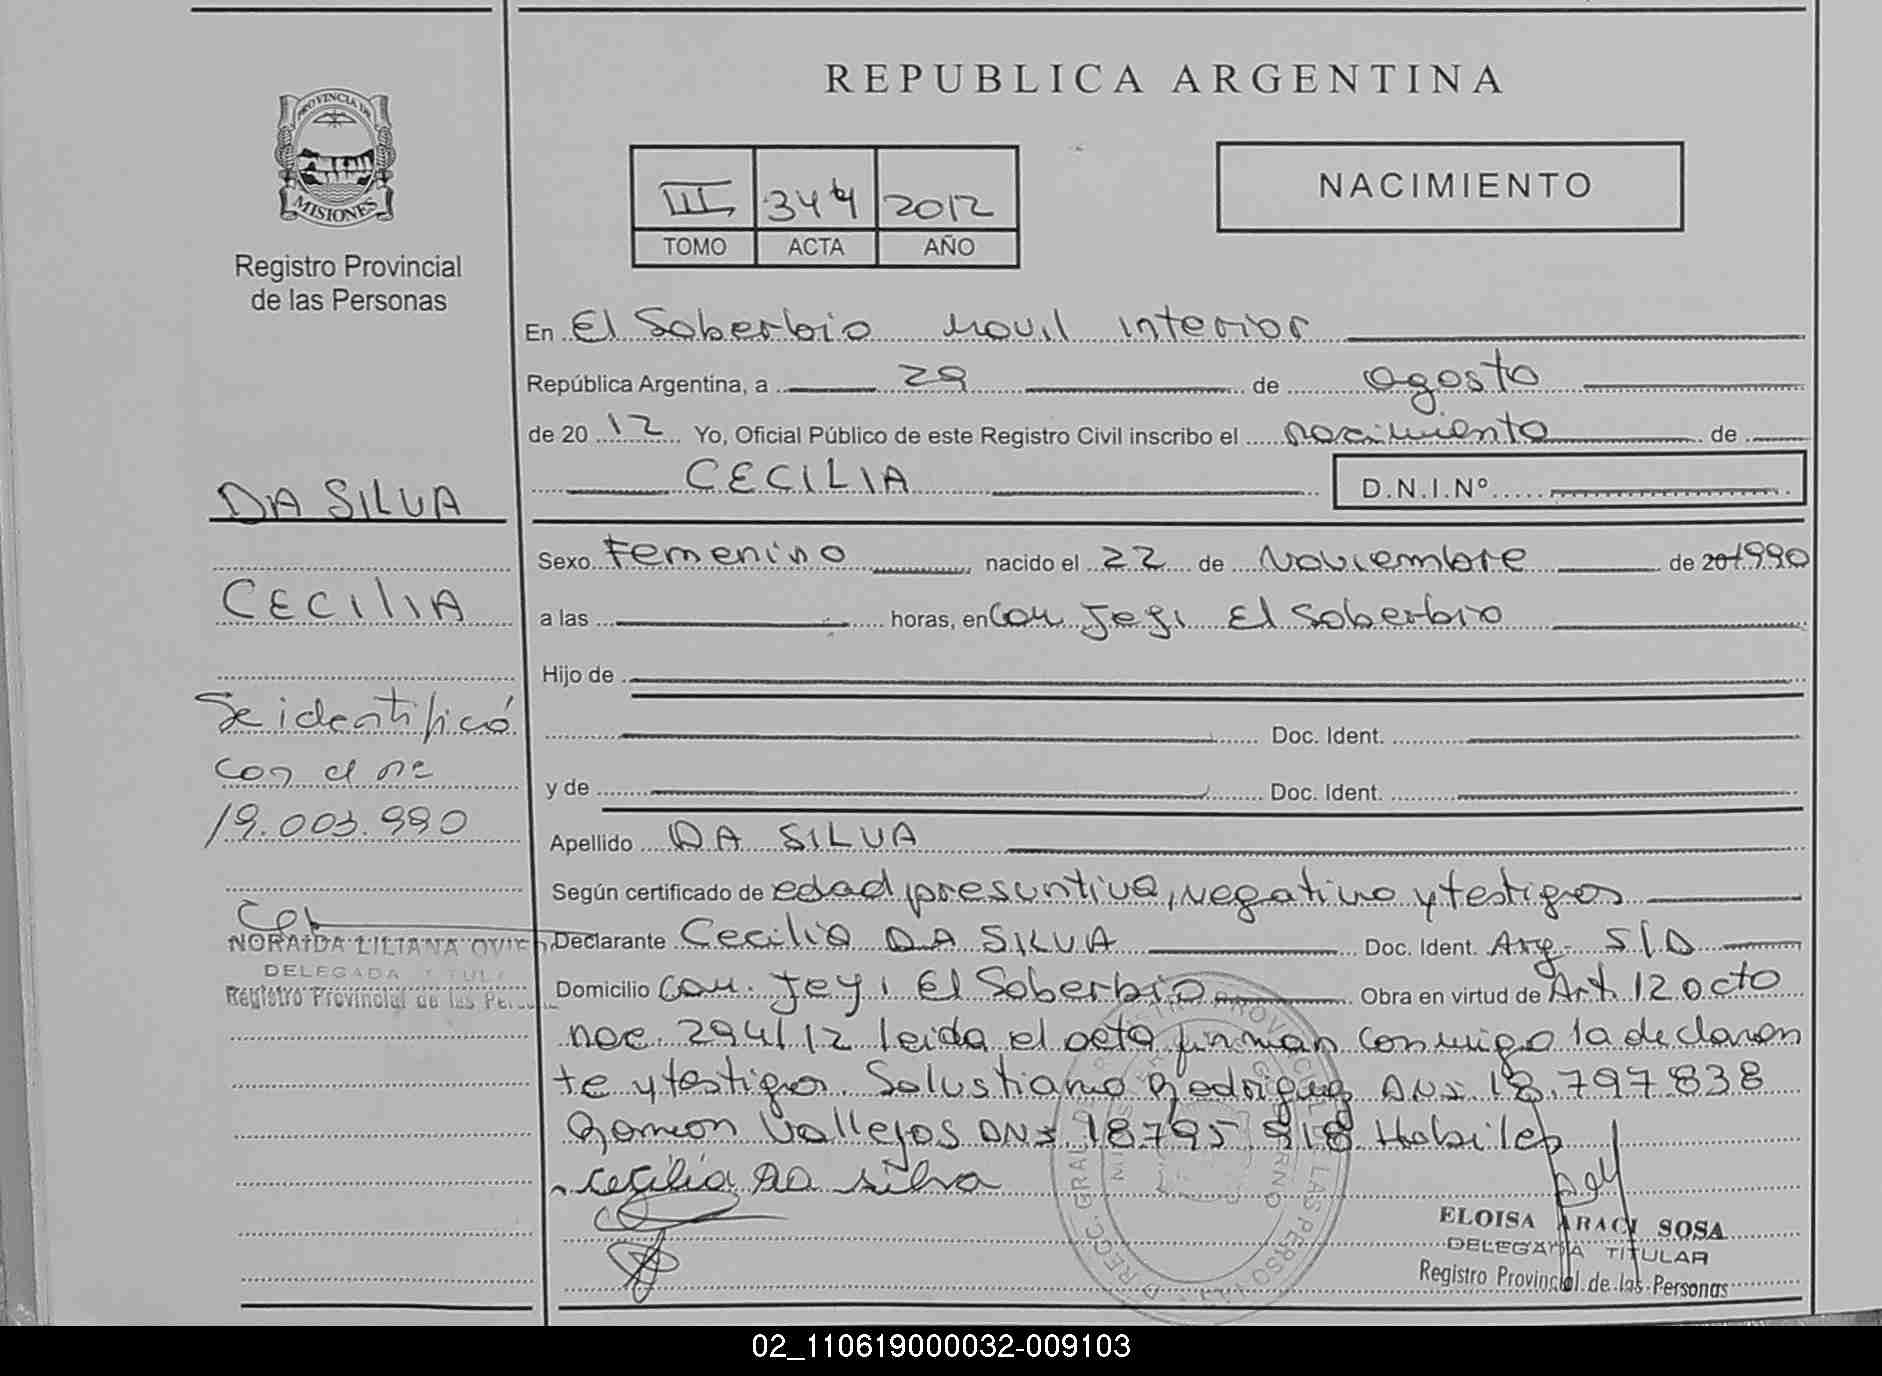 REPUBLICA ARGENTINA
PROVINCIA DE
MISIONES
Registro Provincial
de las Personas
III 344 2012
TOMO ACTA AÑO
NACIMIENTO
En El Soberbio Movil interior
República Argentina, a 29 de agosto
de 2012 Yo, Oficial Público de este Registro Civil inscribo el nacimiento de
CECILIA D.N.I.Nº
DA SILVA
CECILIA
Se identificó
con el nº
19.003.990
NORAIDA LILIANA
DELEGADA
Registro Provincial de las
Sexo Femenino nacido el 22 de Noviembre de 201990
a las horas, en Com Jeji El Soberbio
Hijo de
Doc. Ident.
y de Doc. Ident.
Apellido DA SILVA
Según certificado de edad presuntiva, negativo y testigos
Declarante Cecilia DA SILVA Doc. Ident. Arg. S/D
Domicilio Com. Jeyi El Soberbio Obra en virtud de Art. 12 octo
nac. 294/12 leida el acta firman conmigo la declaran
te y testigos. Salustiano Rodriguez DNI 18.797.838
Ramon Vallejos DNI 18795 918 Habiles
Cecilia Da silva
ELOISA ARACI SOSA
DELEGADA TITULAR
Registro Provincial de las Personas
02_110619000032-009103